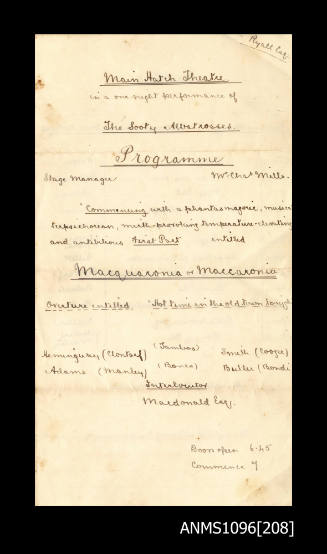 Ryall Esq.
Main Hatch Theatre
in a one night performance of
The Sooty Albatrosses.
Programme
Stage Manager Mr Chas Mills.
"Commencing with a phantasmagoric, musico
terpsichorean, mirth-provoking temperature-elevating
and antibilious First Part entitled
Macquaronia or Maccaronia
Overture entitled. "Hot time in the old town tonight
(Tambos)
Hemingway (Clontarf) Smith (Coogee)
Adams (Manly) (Bones) Butler (Bondi
Interlocutor
Macdonald Esq.
Doors open 6.45
Commence 7
ANMS1096[208]